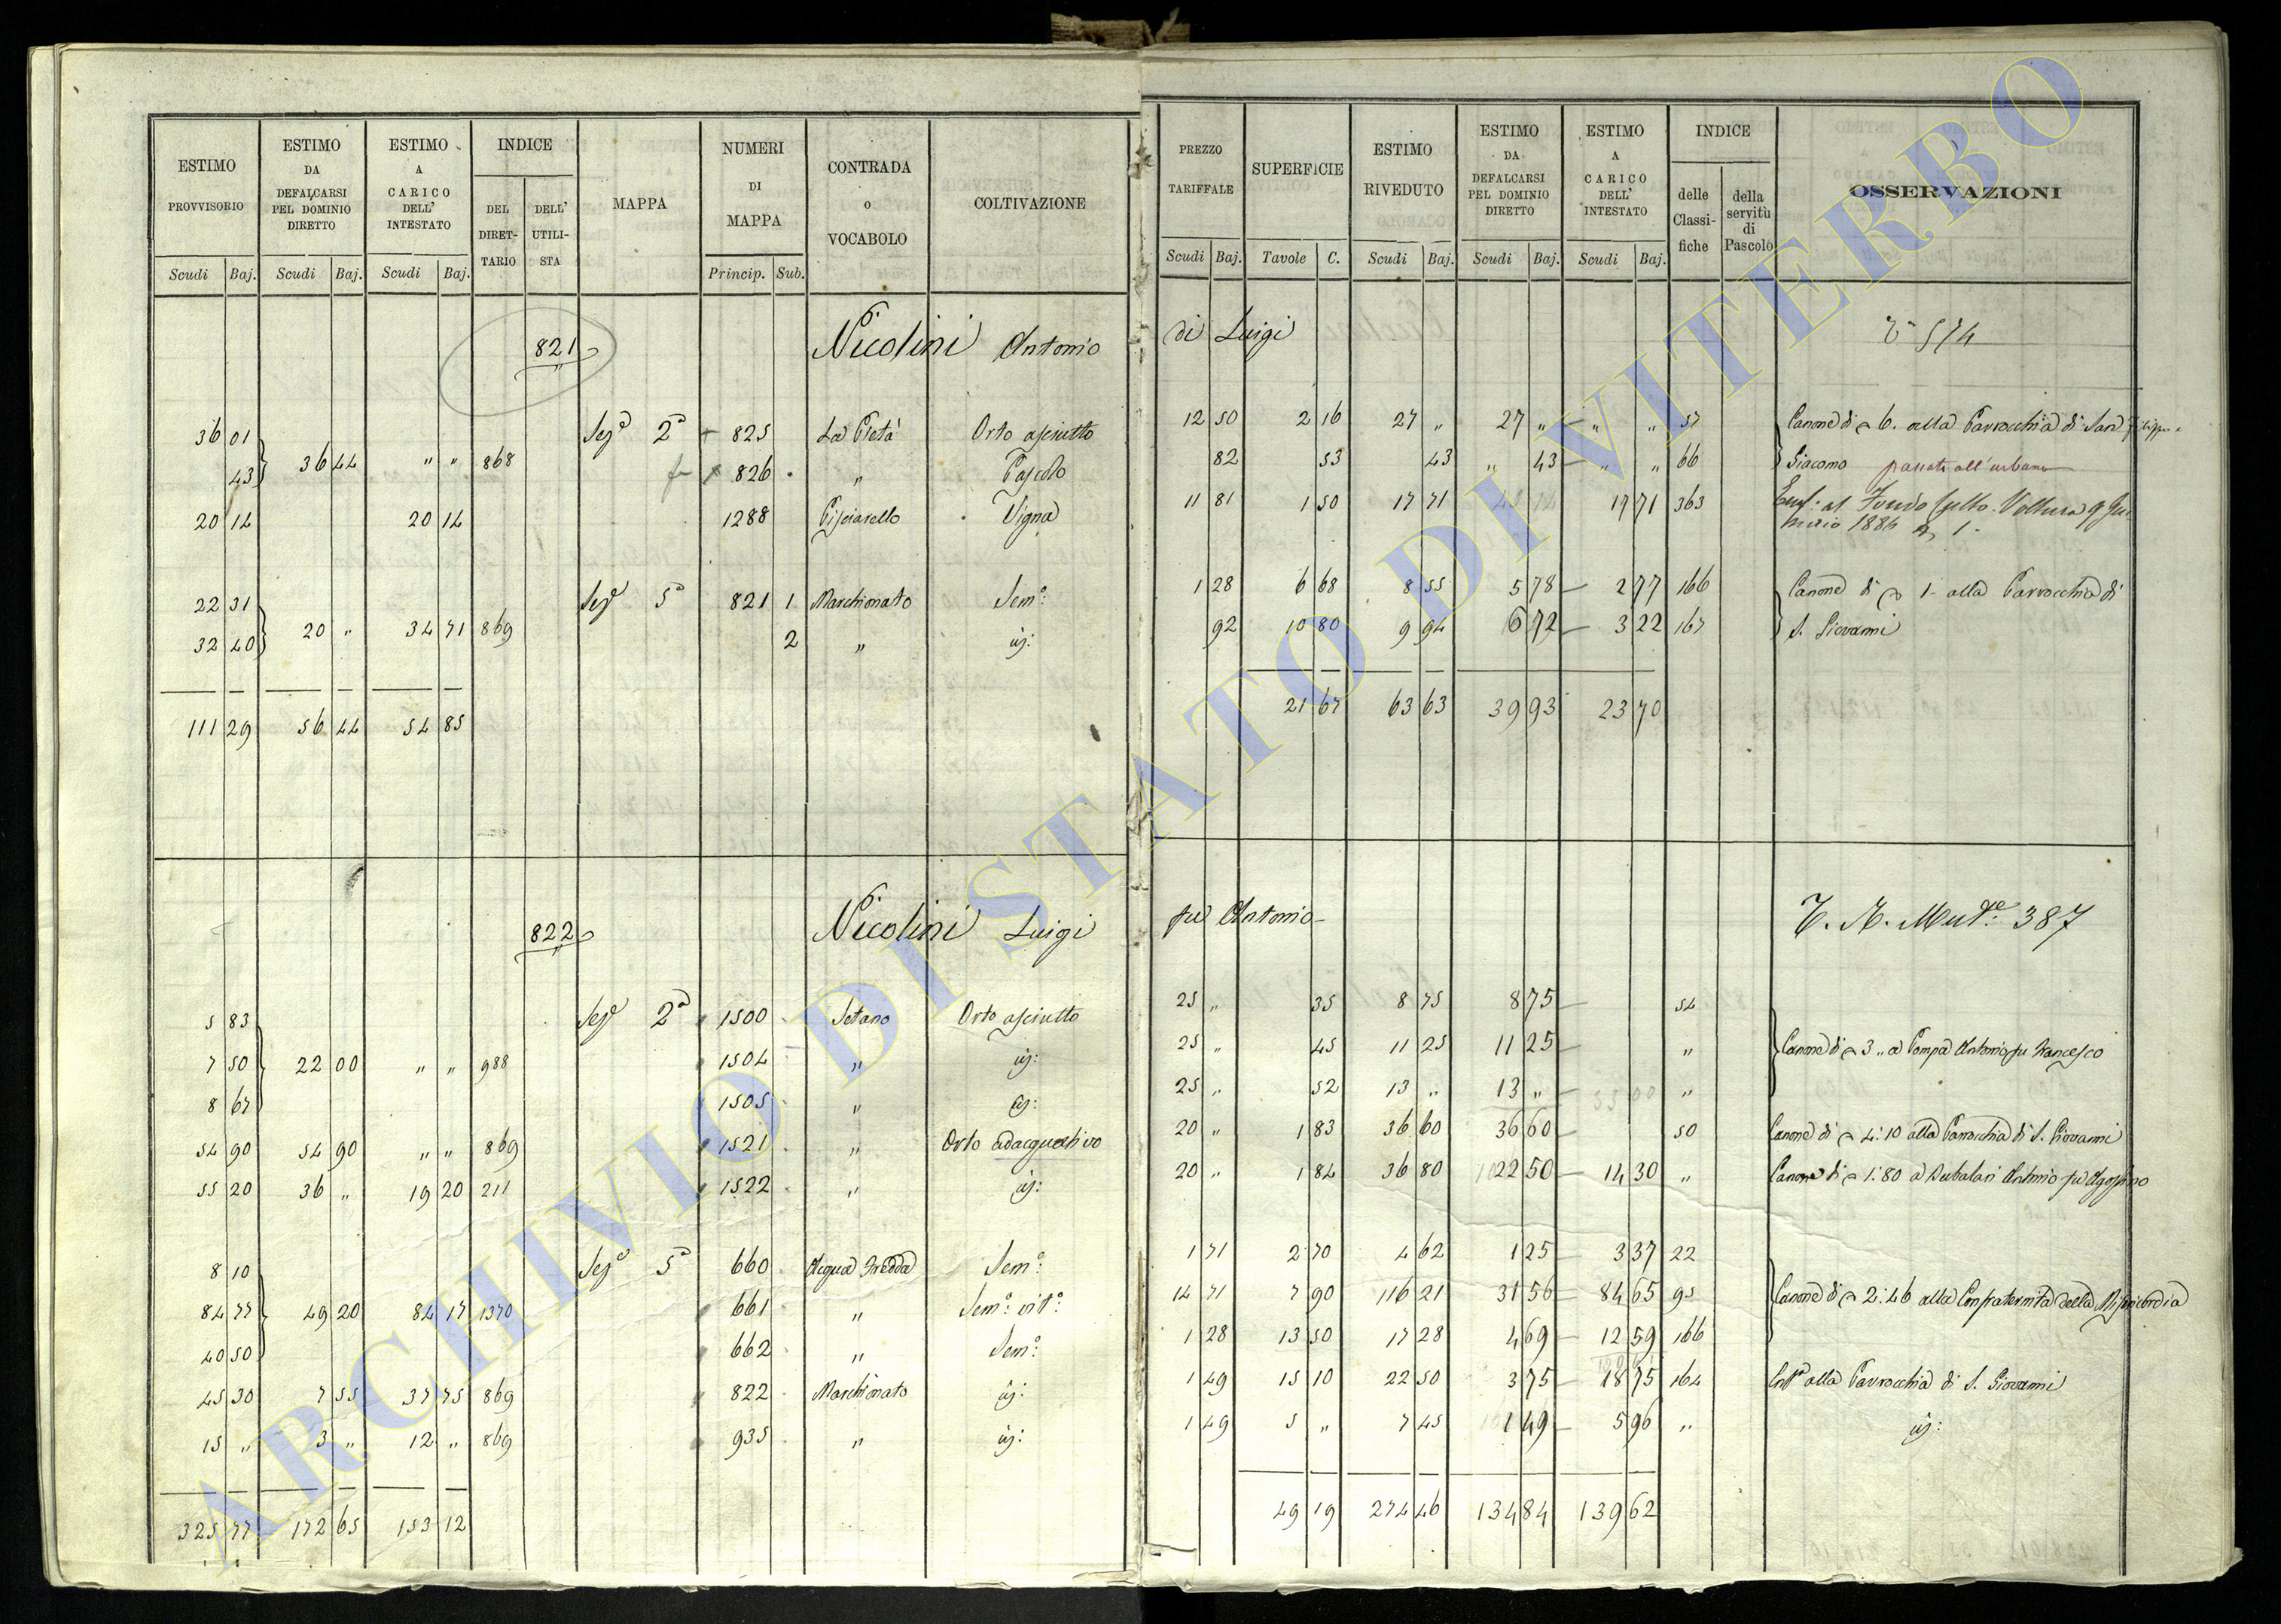 ESTIMO PROVVISORIO | ESTIMO DA DEFALCARSI PEL DOMINIO DIRETTO | ESTIMO A CARICO DELL' INTESTATO | INDICE | MAPPA | NUMERI DI MAPPA | CONTRADA o VOCABOLO | COLTIVAZIONE | PREZZO TARIFFALE | SUPERFICIE | ESTIMO RIVEDUTO | ESTIMO DA DEFALCARSI PEL DOMINIO DIRETTO | ESTIMO A CARICO DELL' INTESTATO | INDICE | OSSERVAZIONI
DEL DIRET-TARIO | DELL' UTILI-STA | delle Classi-fiche | della servitù di Pascolo
Scudi Baj. | Scudi Baj. | Scudi Baj. | Princip. Sub. | Scudi Baj. | Tavole C. | Scudi Baj. | Scudi Baj. | Scudi Baj.
821 Nicolini Antonio di Luigi 574
36 01 Sez.e 2a 825 La Pietà Orto asciutto 12 50 2 16 27 „ 27 „ „ „ 57 Canone di 6. alla Parrocchia di San Filippo e
43 36 44 „ „ 868 826 „ Pascolo 82 53 43 „ 43 „ „ 66 Giacomo passati all'urbano
20 14 20 14 1288 Pisciarello Vigna 11 81 1 50 17 71 17 71 363 al Fondo Voltura 9
1886 1
22 31 Sez.e 5a 821 1 Marchionato Sem.o 1 28 6 68 8 55 5 78 2 77 166 Canone di 1 alla Parrocchia di
32 40 20 „ 34 71 869 2 „ id: 92 10 80 9 94 6 72 3 22 167 S. Giovanni
111 29 56 44 54 85 21 67 63 63 39 93 23 70
822 Nicolini Luigi fu Antonio Mut.e 387
5 83 Sez.e 2a 1500 Setano Orto asciutto 25 „ 35 8 75 8 75 54
7 50 22 00 „ „ 988 1504 „ id: 25 „ 45 11 25 11 25 „ Canone di 3 „ a Pompa Antonio fu Francesco
8 67 1505 „ id: 25 „ 52 13 „ 13 „ „
54 90 54 90 „ „ 869 1521 „ Orto adacquativo 20 „ 1 83 36 60 36 60 50 Canone di 4:10 alla Parrocchia di S. Giovanni
55 20 36 „ 19 20 211 1522 „ id: 20 „ 1 84 36 80 22 50 14 30 „ Canone di 1:80 a Antonio fu Agostino
8 10 Sez.e 5a 660 Acqua Fredda Sem.o 1 71 2 70 4 62 1 25 3 37 22
84 77 49 20 84 17 1370 661 „ Sem.o vit.o 14 71 7 90 116 21 31 56 84 65 95 Canone di 2:46 alla Confraternita della Misericordia
40 50 662 „ Sem.o 1 28 13 50 17 28 4 69 12 59 166
45 30 7 55 37 75 869 822 Marchionato id: 1 49 15 10 22 50 3 75 18 75 164 alla Parrocchia di S. Giovanni
15 „ 3 „ 12 „ 869 935 „ id: 1 49 5 „ 7 45 1 49 5 96 „ id:
325 77 172 65 153 12 49 19 274 46 134 84 139 62
ARCHIVIO DI STATO DI VITERBO